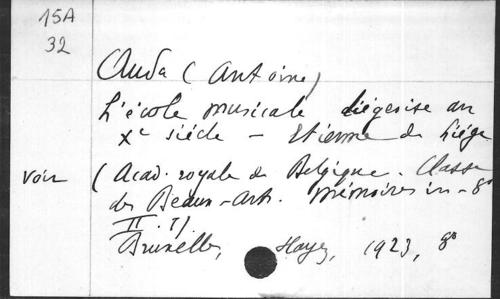 15A
32
Auda (Antoine)
L'école musicale liégeoise au
Xe siècle - Etienne de Liége
Voir (Acad. royale de Belgique. Classe
des Beaux-Arts. Mémoires in-8°
II.
Bruxelles, Hayez, 1923, 8°